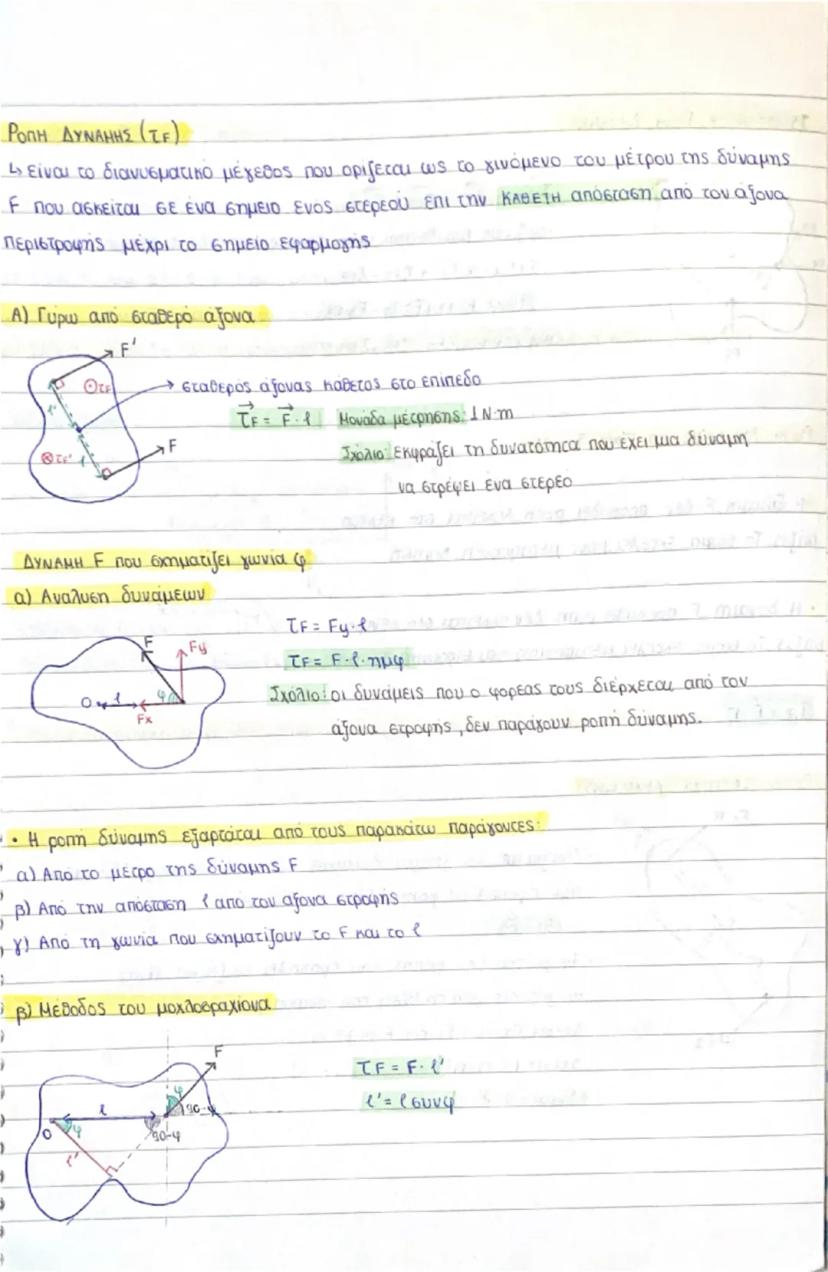 ΡΟΠΗ ΔΥΝΑΜΗΣ (τF)
↳ Είναι το διανυσματικό μέγεθος που οριζεται ως το γινόμενο του μέτρου της δύναμης
F που ασκείται σε ένα σημειο ενος στερεού επι την ΚΑΘΕΤΗ απόσταση από τον άξονα
περιστροφής μέχρι το σημείο εφαρμογής
Α) Γύρω από σταθερό άξονα
F'
⊙τF
→ σταθερός άξονας κάθετος στο επίπεδο
l'
τF = F · l Μονάδα μέτρησης: 1 N·m
F
⊗τF' l
Σχόλιο: εκφράζει τη δυνατότητα που έχει μια δύναμη
να στρέψει ένα στερεό
ΔΥΝΑΜΗ F που σχηματίζει γωνία φ
α) Αναλυση δυνάμεων
τF = Fy·l
F Fy
τF = F·l·ημφ
O l φ
Fx
Σχόλιο: οι δυνάμεις που ο φορέας τους διέρχεται από τον
άξονα στροφής, δεν παράγουν ροπή δύναμης.
• Η ροπή δύναμης εξαρτάται από τους παρακάτω παράγοντες:
α) Από το μέτρο της δύναμης F
β) Από την απόσταση l από τον άξονα στροφής
γ) Από τη γωνία που σχηματίζουν το F και το l
β) Μέθοδος του μοχλοβραχίονα
F
τF = F· l'
l φ 90-φ
l' = l συνφ
O φ 90-φ
l'